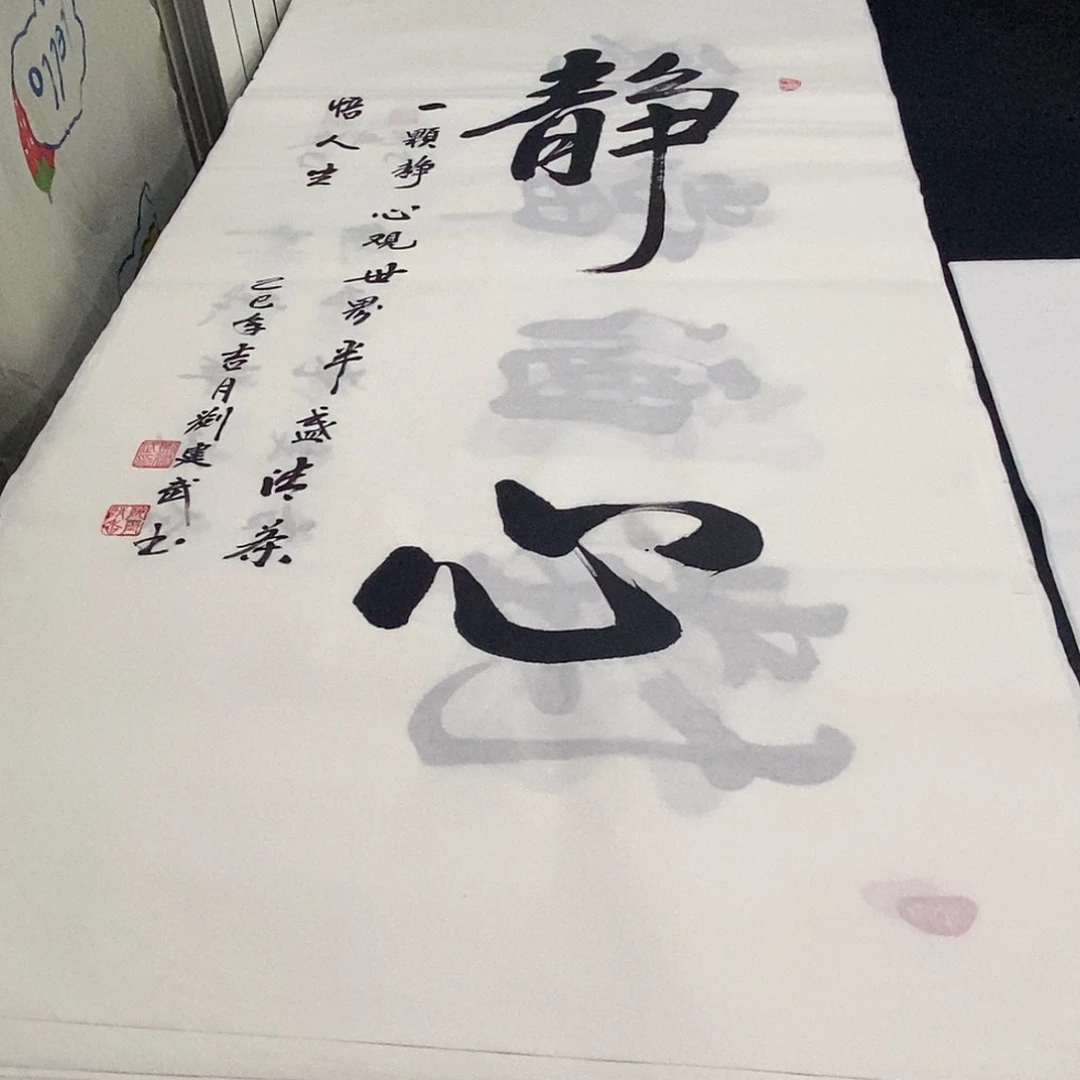 静心
一颗静心观世界半盏清茶
悟人生
乙巳年吉月刘建武书
Hello